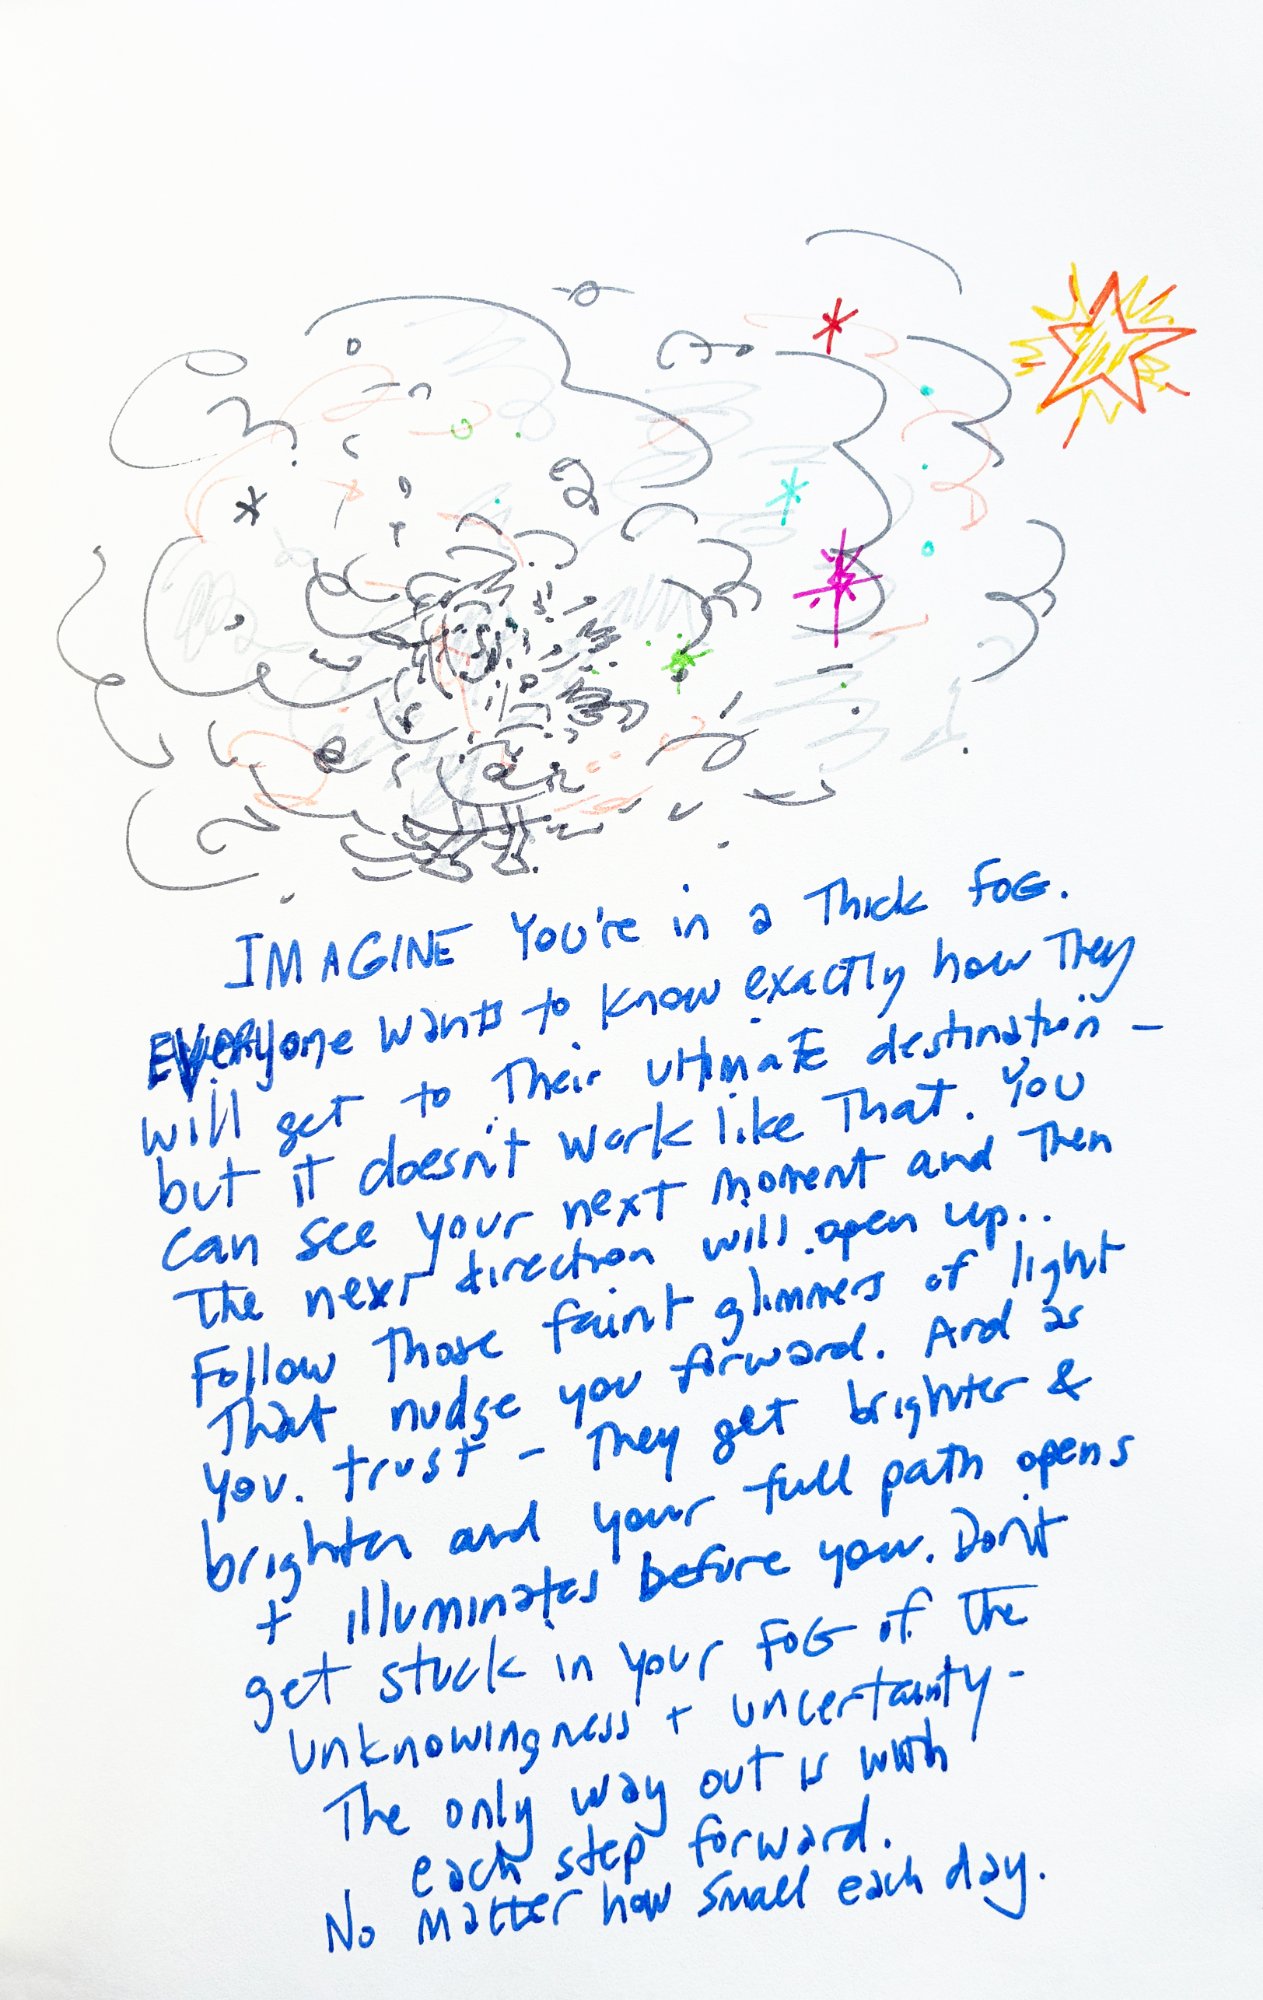 IMAGINE You're in a Thick FOG.
EVERYone wants to know exactly how They
will get to Their ultimATE destination –
but it doesn't work like That. You
can see your next moment and Then
The next direction will open up..
Follow Those faint glimmers of light
That nudge you forward. And as
you trust – They get brighter &
brighter and your full path opens
+ illuminates before you. Don't
get stuck in your FOG of The
unknowingness + uncertainty –
The only way out is with
each step forward.
No matter how small each day.